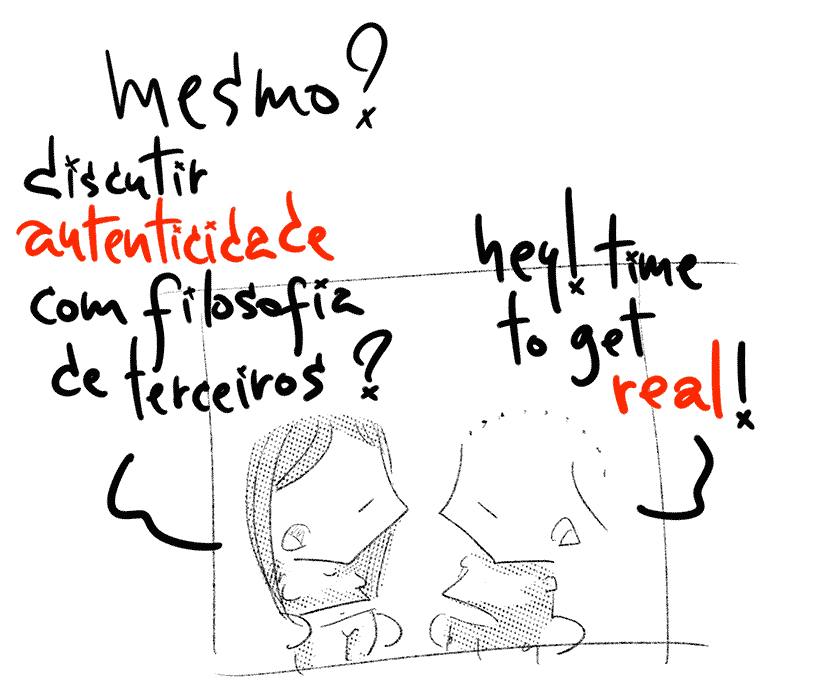 mesmo?
discutir
autenticidade
com filosofia
de terceiros?
hey! time
to get
real!